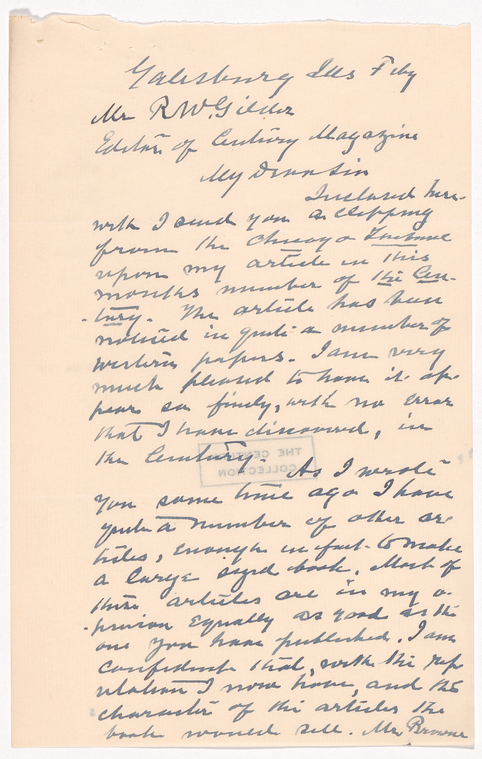 Galesburg Ills Feby
Mr R W. Gilder
Editor of Century Magazine
My Dear Sir
Inclosed here-
with I send you a clipping
from the Chicago Tribune
upon my article in this
months number of the Cen-
-tury. The article has been
noticed in quite a number of
western papers. I am very
much pleased to have it ap-
pear so finely, with no error
that I have discovered, in
the Century. As I wrote
THE CENTURY
COLLECTION
you some time ago I have
quite a number of other ar-
ticles, enough in fact to make
a large sized book. Most of
these articles are in my o-
-pinion equally as good as the
one you have published. I am
confident that, with the rep
utation I now have, and the
character of the articles the
book would sell. Mr Browne